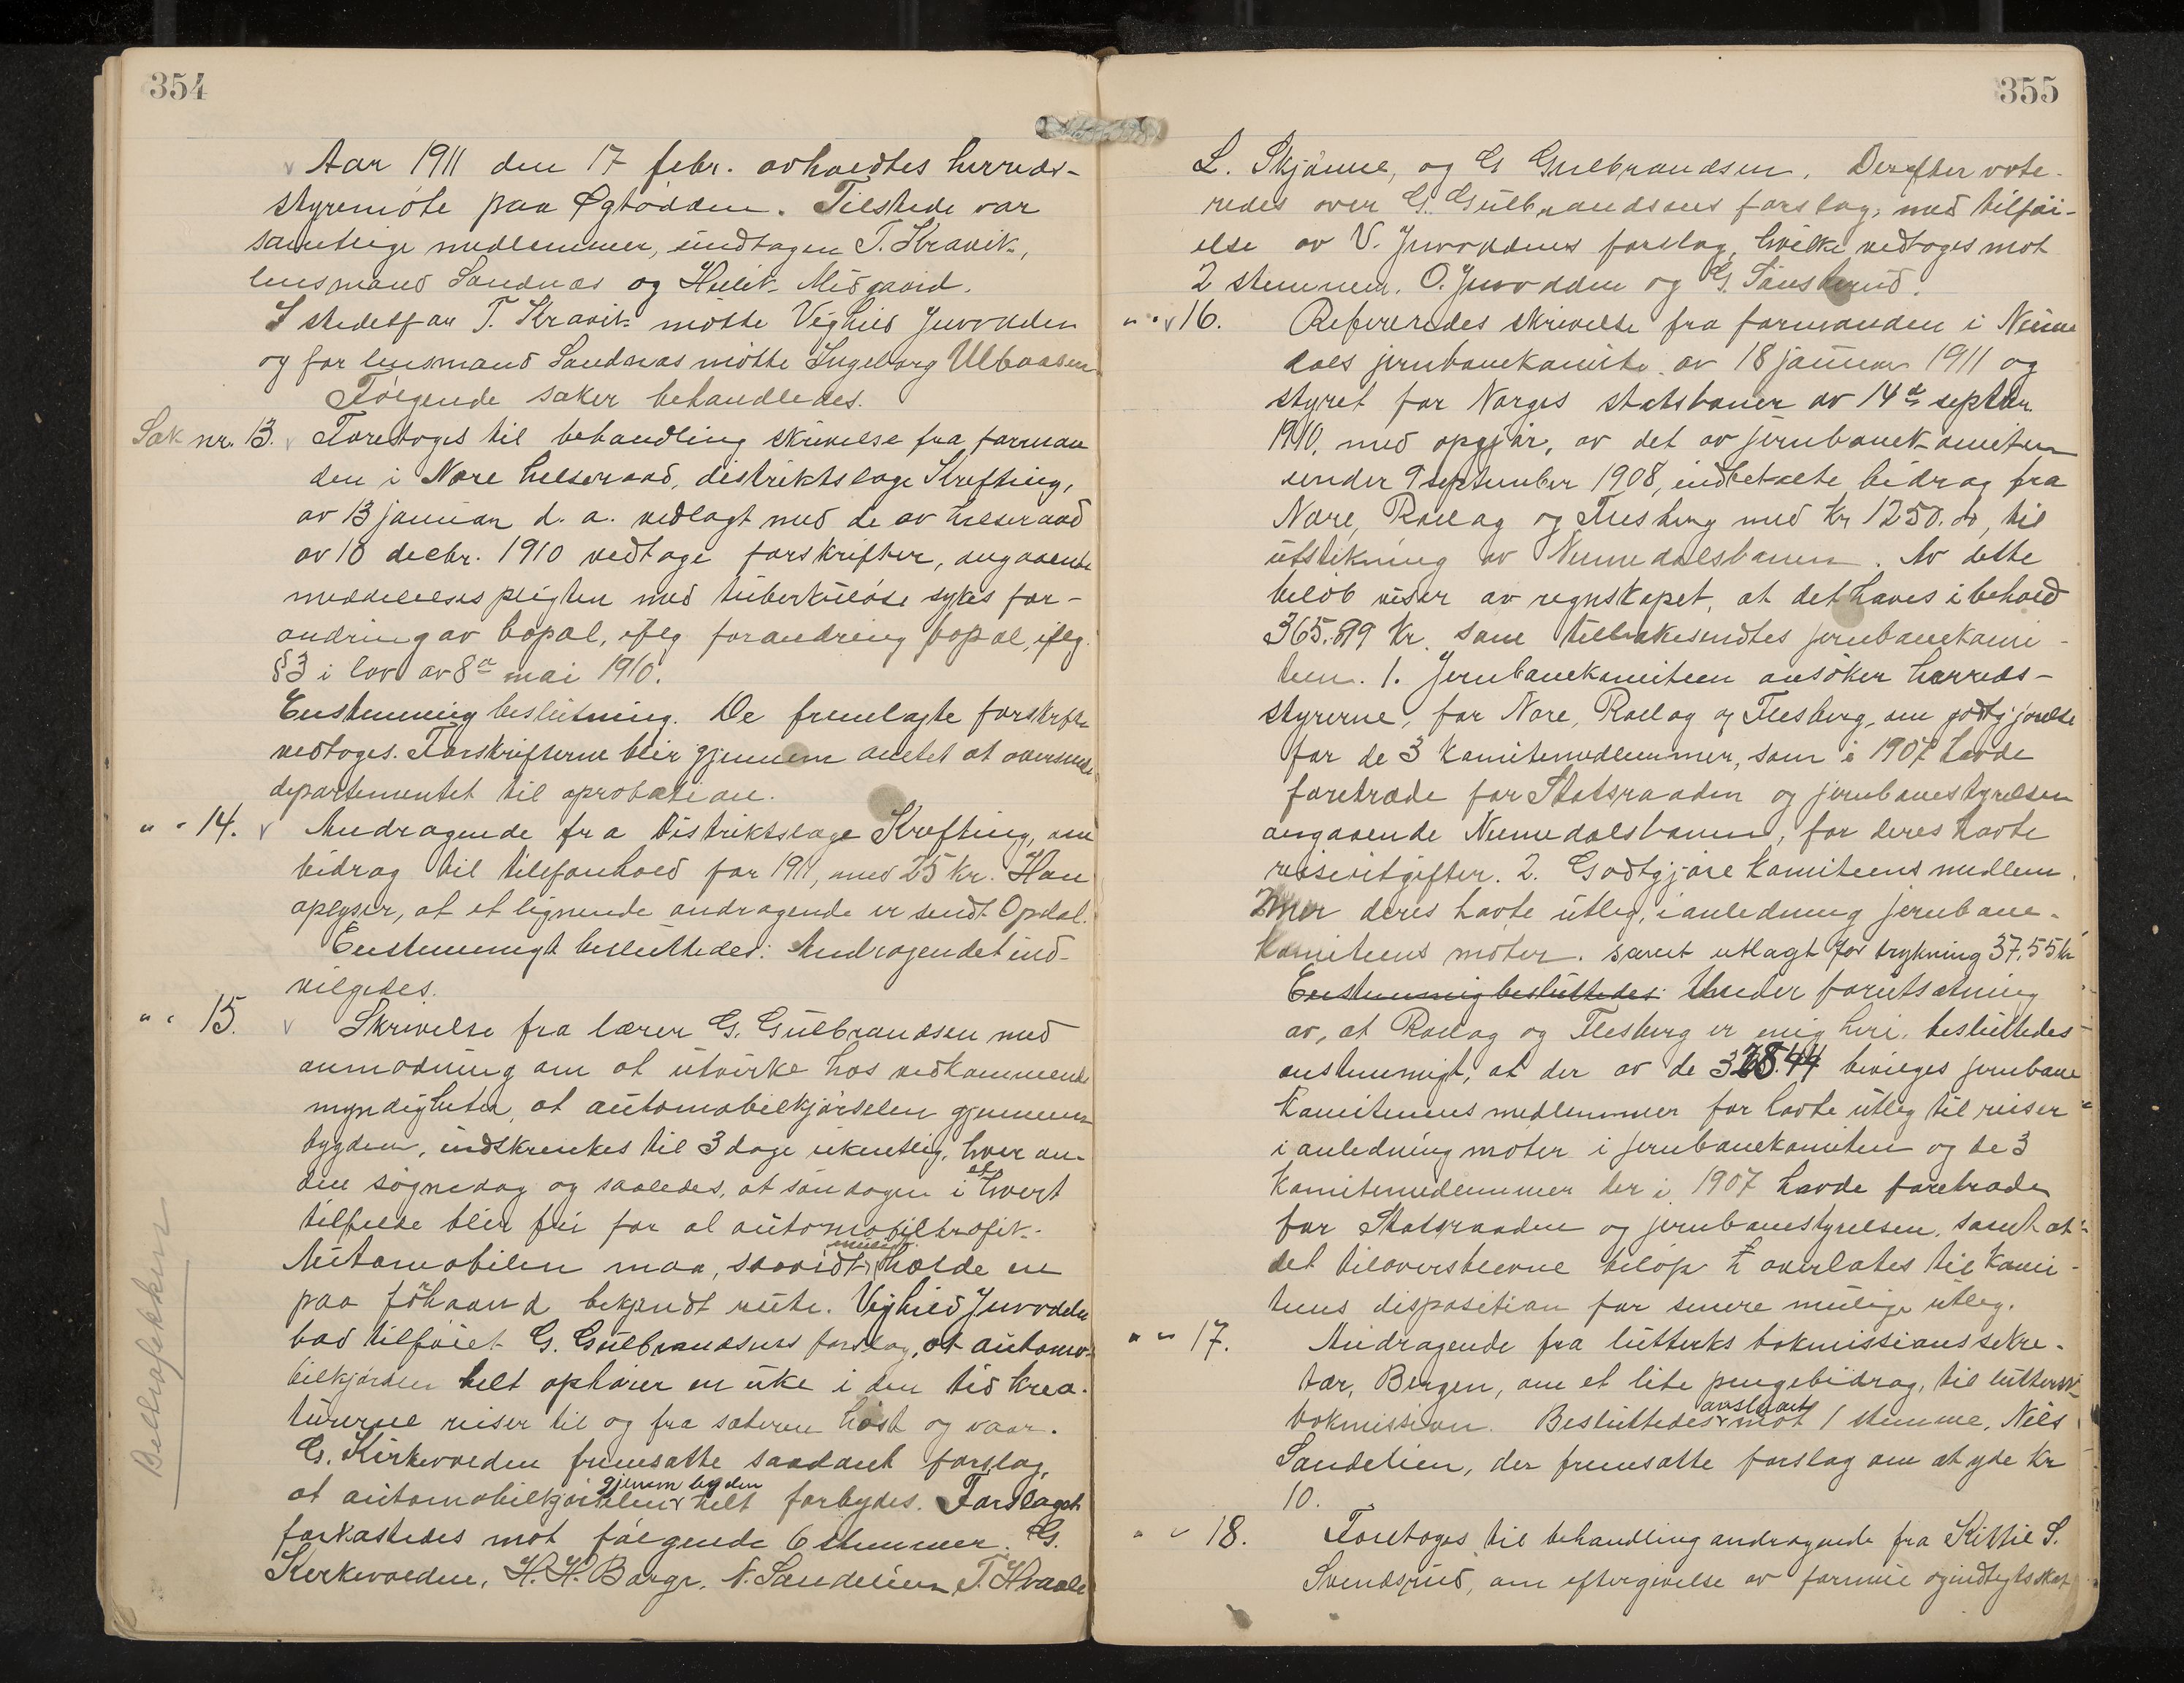 354
Aar 1911 den 17 febr. avholdtes herreds-
styremöte paa Øgtödden. Tilstede var
samtlige medlemmer, undtagen T. Kravik,
lensmand Sandnæs og Midgaard.
I stedetfor T. Kravik mötte Veglied Juvodden
og for lensmand Sandnæs mötte Ingeborg Ulbaasen
Fölgende saker behandledes.
Sak nr. 13. Foretoges til behandling skrivelse fra forman
den i Nore helseraad, distriktslæge Krefting,
av 13 januar d. a. vedlagt med de av helseraad
av 10 decbr. 1910 vedtage forskrifter, angaaende
meddelelsespligten med tuberkulöse sykes for-
andring av bopal, iflg forandring bopal, iflg.
§3 i lov av 8de mai 1910.
Enstemmig beslutning. De fremlagte forskrifter
vedtoges. Forskrifterne blir gjennem amtet at oversende
departementet til aprobation.
" " 14. Andragende fra Distriktslæge Krefting, om
bidrag til telefonhold for 1911, med 25 kr. Han
oplyser, at et lignende andragende er sendt Opdal.
Enstemmigt besluttedes: Andragendet ind-
vilgedes.
" " 15. Skrivelse fra lærer G. Gulbrandsen med
anmodning om at utvirke hos vedkommende
myndigheter, at automobilkjörselen gjennem
bygden, indskrenkes til 3 dage ukentlig, hver an-
den sögnedag og saaledes, at söndagen i et hvert
tilfelde blir fri for al automobiltrafik.
Automobilen maa, saavidt muligt holde en
paa förhaand bekjendt rute. Veglied Juvodden
bad tilföiet G. Gulbrandsens forslag, at automo-
bilkjörslen helt ophörer en uke i den tid krea-
turerne reiser til og fra sæteren höst og vaar.
G. Kirkevolden fremsatte saadant forslag,
at automobilkjörselen gjennem bygden helt forbydes. Forslaget
forkastedes mot fölgende 6 stemmer: G.
Kirkevolden, H. H. Barge, N. Sandelien, T. Hvaale
Beltrafikken
355
L. Skjönne, og G Gulbrandsen. Derefter vote-
redes over G. Gulbrandsens forslag, med tilföi-
else av V. Juvoddens forslag, hvilke vedtoges mot
2 stemmer. O. Juvodden og G. Tönsterud.
" " 16. Refereredes skrivelse fra formanden i Nume
dals jernbanekomite av 18 januar 1911 og
styret for Norges statsbaner av 14de septbr.
1910, med opgjör, av det av jernbanekomiteen
under 9 september 1908, indbetalte bidrag fra
Nore, Rollag og Flesberg med Kr 1250.00, til
utstikning av Numedalsbanen. Av dette
belöb viser av regnskapet, at det haves i behold
365.89 Kr. som tilbakesendtes jernbanekomi-
teen. 1. Jernbanekomiteen ansöker herreds-
styrerne, for Nore, Rollag og Flesberg, om godtgjörelse
for de 3 komitemedlemmer, som i 1907 havde
foretræde for Statsraaden og jernbanestyrelsen
angaaende Numedalsbanen, for deres havte
reiseutgifter. 2. Godtgjöre komiteens medlem
mer deres havte utleg, i anledning jernbane-
komiteens möter. samt utlagt for trykning 37,55 kr
Enstemmig besluttedes: Under forutsætning
av, at Rollag og Flesberg er enig heri, besluttedes
enstemmigt, at der av de 328.44 bevilges jernbane
komiteens medlemmer for havte utleg til reiser
i anledning möter i jernbanekomiteen og de 3
komitemedlemmer der i 1907 havde foretræde
for Statsraaden og jernbanestyrelsen, samt at
det tiloversblevne belöp overlates til komi-
teens disposition for senere mulige utleg.
" " 17. Andragende fra luthersk bokmissionssekre-
tær, Bergen, om et lite pengebidrag, til luthersk
bokmission. Besluttedes avslaat mot 1 stemme, Nils
Sandelien, der fremsatte forslag om at yde Kr
10.
" " 18. Foretoges til behandling andragende fra Kittil S.
Svendsrud, om eftergivelse av formue og indtegtsskat